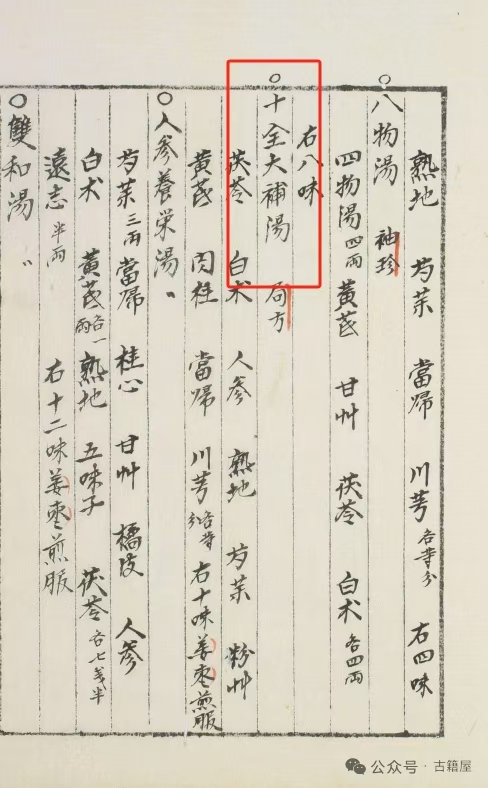 熟地 芍茱 當歸 川芎 各等分 右四味
○八物湯 袖珍
四物湯 四兩 黃芪 甘艸 茯苓 白朮 各四兩
右八味
○十全大補湯 局方
茯苓 白朮 人參 熟地 芍茱 粉艸
黃芪 肉桂 當歸 川芎 各等分 右十味姜枣煎服
○人參養栄湯 〃
芍茱 三兩 當歸 桂心 甘艸 橘皮 人參
白朮 黃芪 各一兩 熟地 五味子 茯苓 各七戔半
遠志 半兩 右十二味姜枣煎服
○雙和湯 〃
公众号·古籍屋